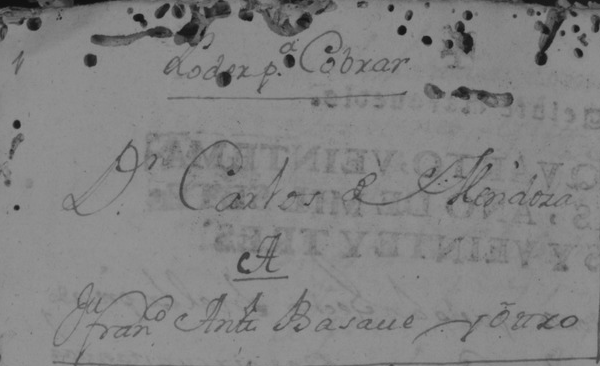 Poder p.ª Cobrar
D.n Carlos de Mendoza
A
Fran.co Ant.o Basaue y otro